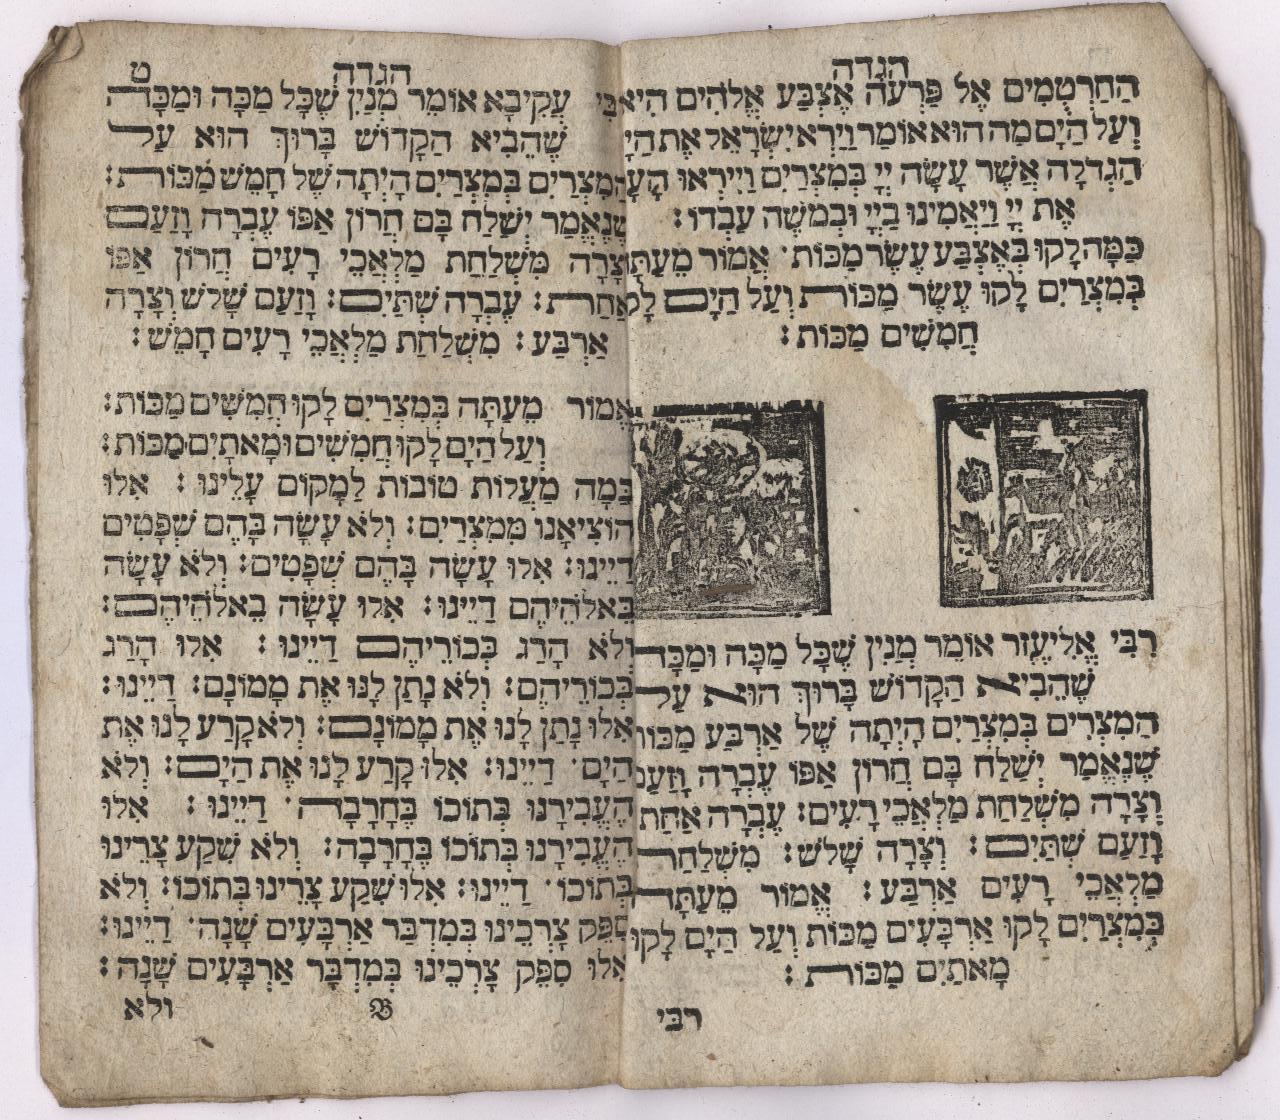 הגדה
הַחַרְטֻמִים אֶל פַּרְעֹה אֶצְבַּע אֱלֹהִים הִיא
וְעַל הַיָם מַה הוּא אוֹמֵר וַיַרְא יִשְׂרָאֵל אֶת הַיָ
הַגְדֹלָה אֲשֶׁר עָשָׂה יְיָ בְּמִצְרַיִם וַיִירְאוּ הָעָ
אֶת יְיָ וַיַאֲמִינוּ בַּיְיָ וּבְמשֶׁה עַבְדוֹ:
כַּמָה לָקוּ בְאֶצְבַּע עֶשֶׂר מַכּוֹת. אֱמוֹר מֵעַתָ
בְּמִצְרַיִם לָקוּ עֶשֶׂר מַכּוֹת וְעַל הַיָם לָק
חֲמִשִׁים מַכּוֹת:
רַבִּי אֱלִיעֶזֶר אוֹמֵר מְנַיִן שֶׁכָּל מַכָּה וּמַכָּה
שֶׁהֵבִיא הַקָדוֹשׁ בָּרוּךְ הוּא עַל
הַמִצְרִים בְּמִצְרַיִם הָיְתָה שֶׁל אַרְבַּע מַכּוֹ
שֶׁנֶאֱמַר יְשַׁלַח בָּם חֲרוֹן אַפּוֹ עֶבְרָה וָזַעַם
וְצָרָה מִשְׁלַחַת מַלְאֲכֵי רָעִים: עֶבְרָה אַחַת
וָזַעַם שְׁתַּיִם: וְצָרָה שָׁלשׁ: מִשְׁלַחַת
מַלְאֲכֵי רָעִים אַרְבַּע: אֱמוֹר מֵעַתָּה
בְּמִצְרַיִם לָקוּ אַרְבָּעִים מַכּוֹת וְעַל הַיָם לָקוּ
מָאתַיִם מַכּוֹת:
רבי
הגדה ט
רַבִּי עֲקִיבָא אוֹמֵר מְנַיִן שֶׁכָּל מַכָּה וּמַכָּה
שֶׁהֵבִיא הַקָדוֹשׁ בָּרוּךְ הוּא עַל
הַמִצְרִים בְּמִצְרַיִם הָיְתָה שֶׁל חָמֵשׁ מַכּוֹת:
שֶׁנֶאֱמַר יְשַׁלַח בָּם חֲרוֹן אַפּוֹ עֶבְרָה וָזַעַם
וְצָרָה מִשְׁלַחַת מַלְאֲכֵי רָעִים חֲרוֹן אַפּוֹ
אַחַת: עֶבְרָה שְׁתַּיִם: וָזַעַם שָׁלשׁ וְצָרָה
אַרְבַּע: מִשְׁלַחַת מַלְאֲכֵי רָעִים חָמֵשׁ:
אֱמוֹר מֵעַתָּה בְּמִצְרַיִם לָקוּ חֲמִשִׁים מַכּוֹת:
וְעַל הַיָם לָקוּ חֲמִשִׁים וּמָאתַיִם מַכּוֹת:
כַּמָה מַעֲלוֹת טוֹבוֹת לַמָקוֹם עָלֵינוּ: אִלוּ
הוֹצִיאָנוּ מִמִצְרַיִם: וְלֹא עָשָׂה בָּהֶם שְׁפָטִים
דַיֵינוּ: אִלוּ עָשָׂה בָּהֶם שְׁפָטִים: וְלֹא עָשָׂה
בֵאלֹהֵיהֶם דַיֵינוּ: אִלוּ עָשָׂה בֵאלֹהֵיהֶם:
וְלֹא הָרַג בְּכוֹרֵיהֶם דַיֵינוּ: אִלוּ הָרַג
בְּכוֹרֵיהֶם: וְלֹא נָתַן לָנוּ אֶת מָמוֹנָם: דַיֵינוּ:
אִלוּ נָתַן לָנוּ אֶת מָמוֹנָם: וְלֹא קָרַע לָנוּ אֶת
הַיָם. דַיֵינוּ: אִלוּ קָרַע לָנוּ אֶת הַיָם: וְלֹא
הֶעֱבִירָנוּ בְּתוֹכוֹ בֶּחָרָבָה. דַיֵינוּ: אִלוּ
הֶעֱבִירָנוּ בְּתוֹכוֹ בֶּחָרָבָה: וְלֹא שִׁקַע צָרֵינוּ
בְּתוֹכוֹ. דַיֵינוּ: אִלוּ שִׁקַע צָרֵינוּ בְּתוֹכוֹ: וְלֹא
סִפֵּק צָרְכֵּינוּ בְּמִדְבַּר אַרְבָּעִים שָׁנָה. דַיֵינוּ:
אִלוּ סִפֵּק צָרְכֵּינוּ בְּמִדְבָּר אַרְבָּעִים שָׁנָה:
B ולא